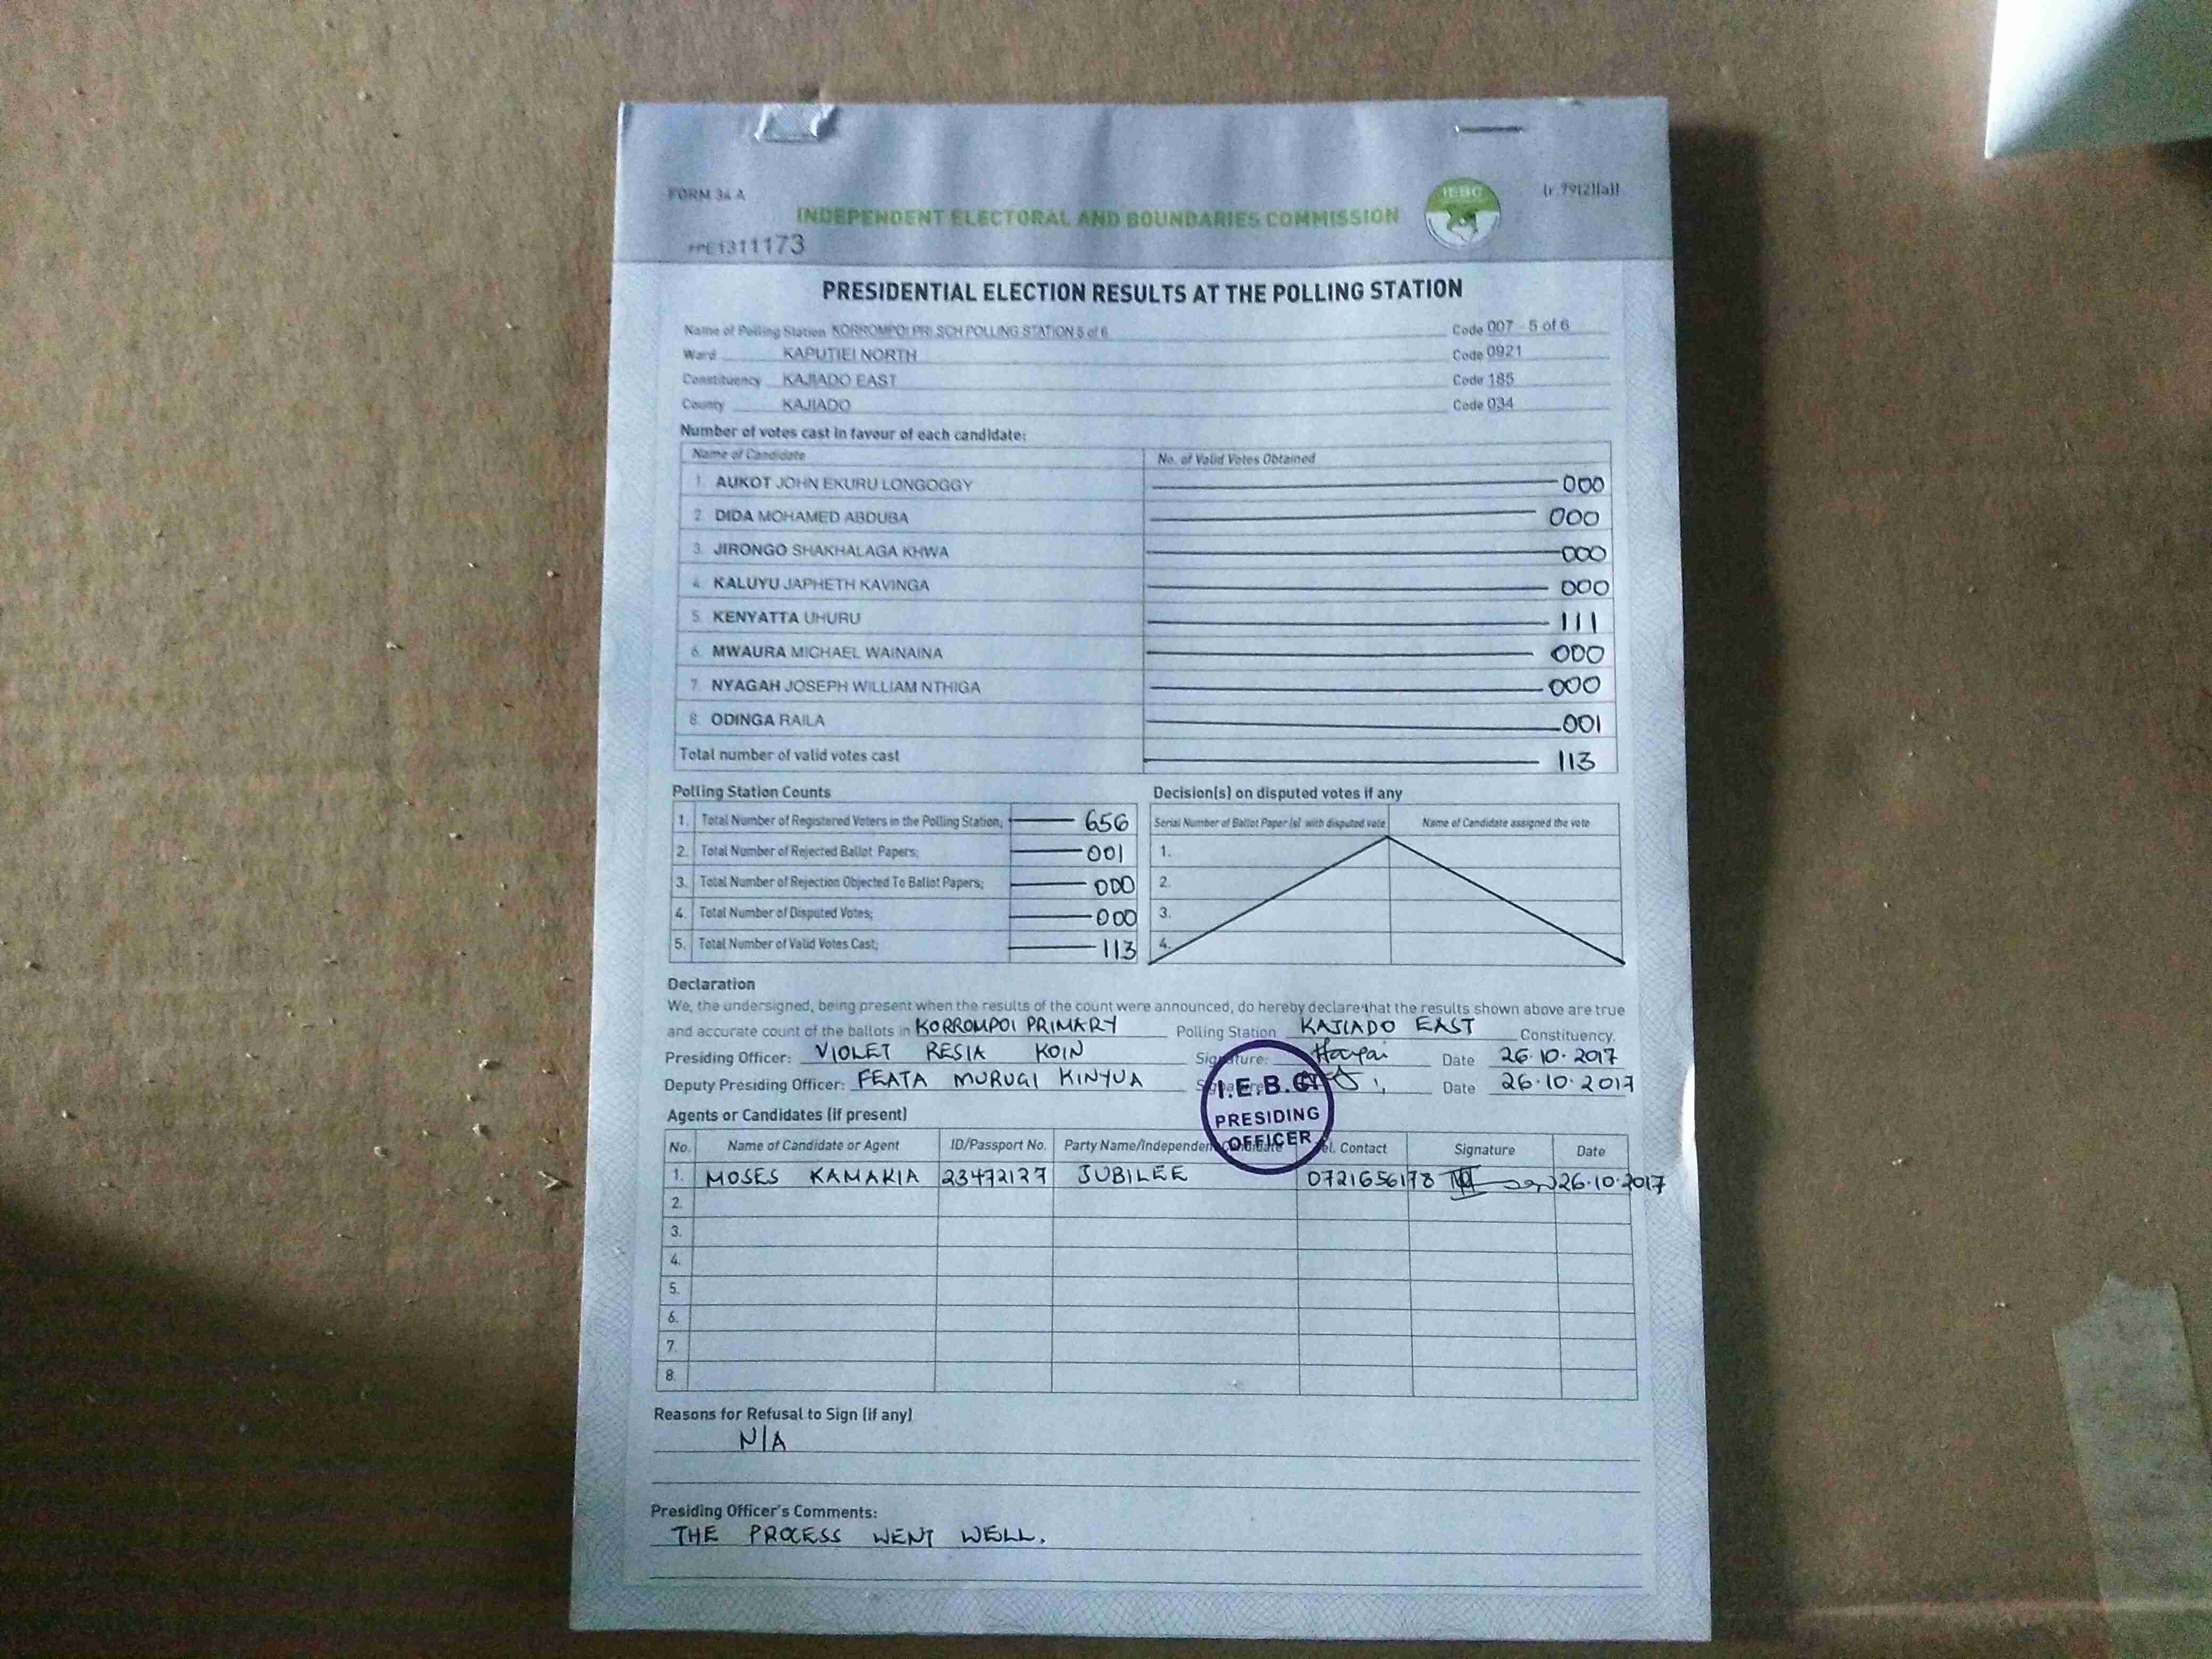 FORM 34 A
(r.79(2)(a))
IEBC
INDEPENDENT ELECTORAL AND BOUNDARIES COMMISSION
1311173
PRESIDENTIAL ELECTION RESULTS AT THE POLLING STATION
Name of Polling Station KORROMPOI PRI SCH POLLING STATION 5 of 6 Code 007 5 of 6
Ward KAPUTIEI NORTH Code 0921
Constituency KAJIADO EAST Code 185
County KAJIADO Code 034
Number of votes cast in favour of each candidate:
Name of Candidate No. of Valid Votes Obtained
1. AUKOT JOHN EKURU LONGOGGY 000
2. DIDA MOHAMED ABDUBA 000
3. JIRONGO SHAKHALAGA KHWA 000
4. KALUYU JAPHETH KAVINGA 000
5. KENYATTA UHURU 111
6. MWAURA MICHAEL WAINAINA 000
7. NYAGAH JOSEPH WILLIAM NTHIGA 000
8. ODINGA RAILA 001
Total number of valid votes cast 113
Polling Station Counts
1. Total Number of Registered Voters in the Polling Station; 656
2. Total Number of Rejected Ballot Papers; 001
3. Total Number of Rejection Objected To Ballot Papers; 000
4. Total Number of Disputed Votes; 000
5. Total Number of Valid Votes Cast; 113
Decision(s) on disputed votes if any
Serial Number of Ballot Paper (s) with disputed vote Name of Candidate assigned the vote
1.
2.
3.
4.
Declaration
We, the undersigned, being present when the results of the count were announced, do hereby declare that the results shown above are true
and accurate count of the ballots in KORROMPOI PRIMARY Polling Station KAJIADO EAST Constituency.
Presiding Officer: VIOLET RESIA KOIN Signature: Date 26.10.2017
Deputy Presiding Officer: FEATA MURUGI KINYUA Signature: Date 26.10.2017
I.E.B.C
PRESIDING
OFFICER
Agents or Candidates (if present)
No. Name of Candidate or Agent ID/Passport No. Party Name/Independent Candidate Tel. Contact Signature Date
1. MOSES KAMAKIA 23472127 JUBILEE 0721656178 26.10.2017
2.
3.
4.
5.
6.
7.
8.
Reasons for Refusal to Sign (if any)
N/A
Presiding Officer's Comments:
THE PROCESS WENT WELL.